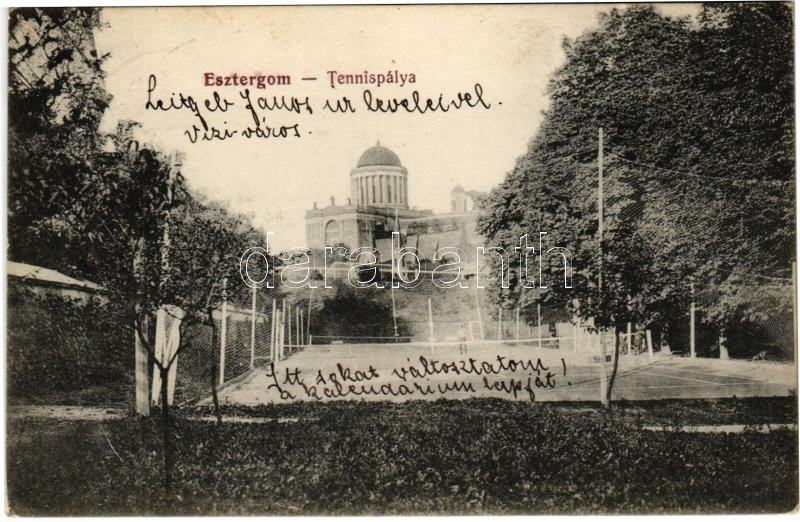 Esztergom — Tennispálya
Leitgeb János úr levelével.
vizi-város.
darabanth
Itt sokat változtatom!
a kalendárium lapját!